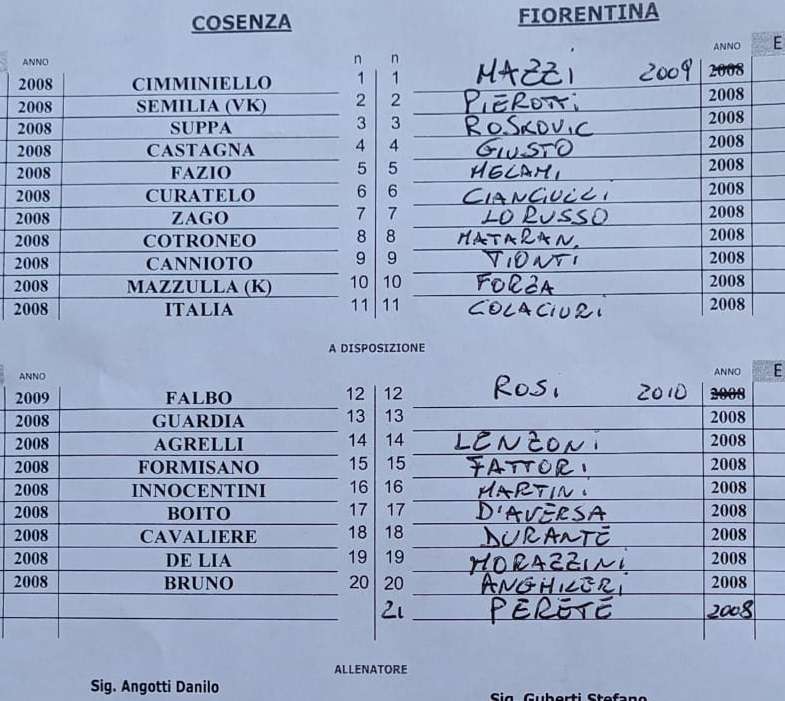 COSENZA FIORENTINA
ANNO n n ANNO E
2008 CIMMINIELLO 1 1 MAZZI 2009 2008
2008 SEMILIA (VK) 2 2 PIEROTTI 2008
2008 SUPPA 3 3 ROSKOVIC 2008
2008 CASTAGNA 4 4 GIUSTO 2008
2008 FAZIO 5 5 MELANI 2008
2008 CURATELO 6 6 CIANCIULLI 2008
2008 ZAGO 7 7 LO RUSSO 2008
2008 COTRONEO 8 8 MATARAN. 2008
2008 CANNIOTO 9 9 2008
2008 MAZZULLA (K) 10 10 FORZA 2008
2008 ITALIA 11 11 COLACIURI 2008
A DISPOSIZIONE
ANNO ANNO E
2009 FALBO 12 12 ROSI 2010 2008
2008 GUARDIA 13 13 2008
2008 AGRELLI 14 14 LENZONI 2008
2008 FORMISANO 15 15 FATTORI 2008
2008 INNOCENTINI 16 16 MARTINI 2008
2008 BOITO 17 17 D'AVERSA 2008
2008 CAVALIERE 18 18 DURANTE 2008
2008 DE LIA 19 19 MORAZZINI 2008
2008 BRUNO 20 20 ANGHILERI 2008
21 PERETE 2008
ALLENATORE
Sig. Angotti Danilo Sig. Guberti Stefano